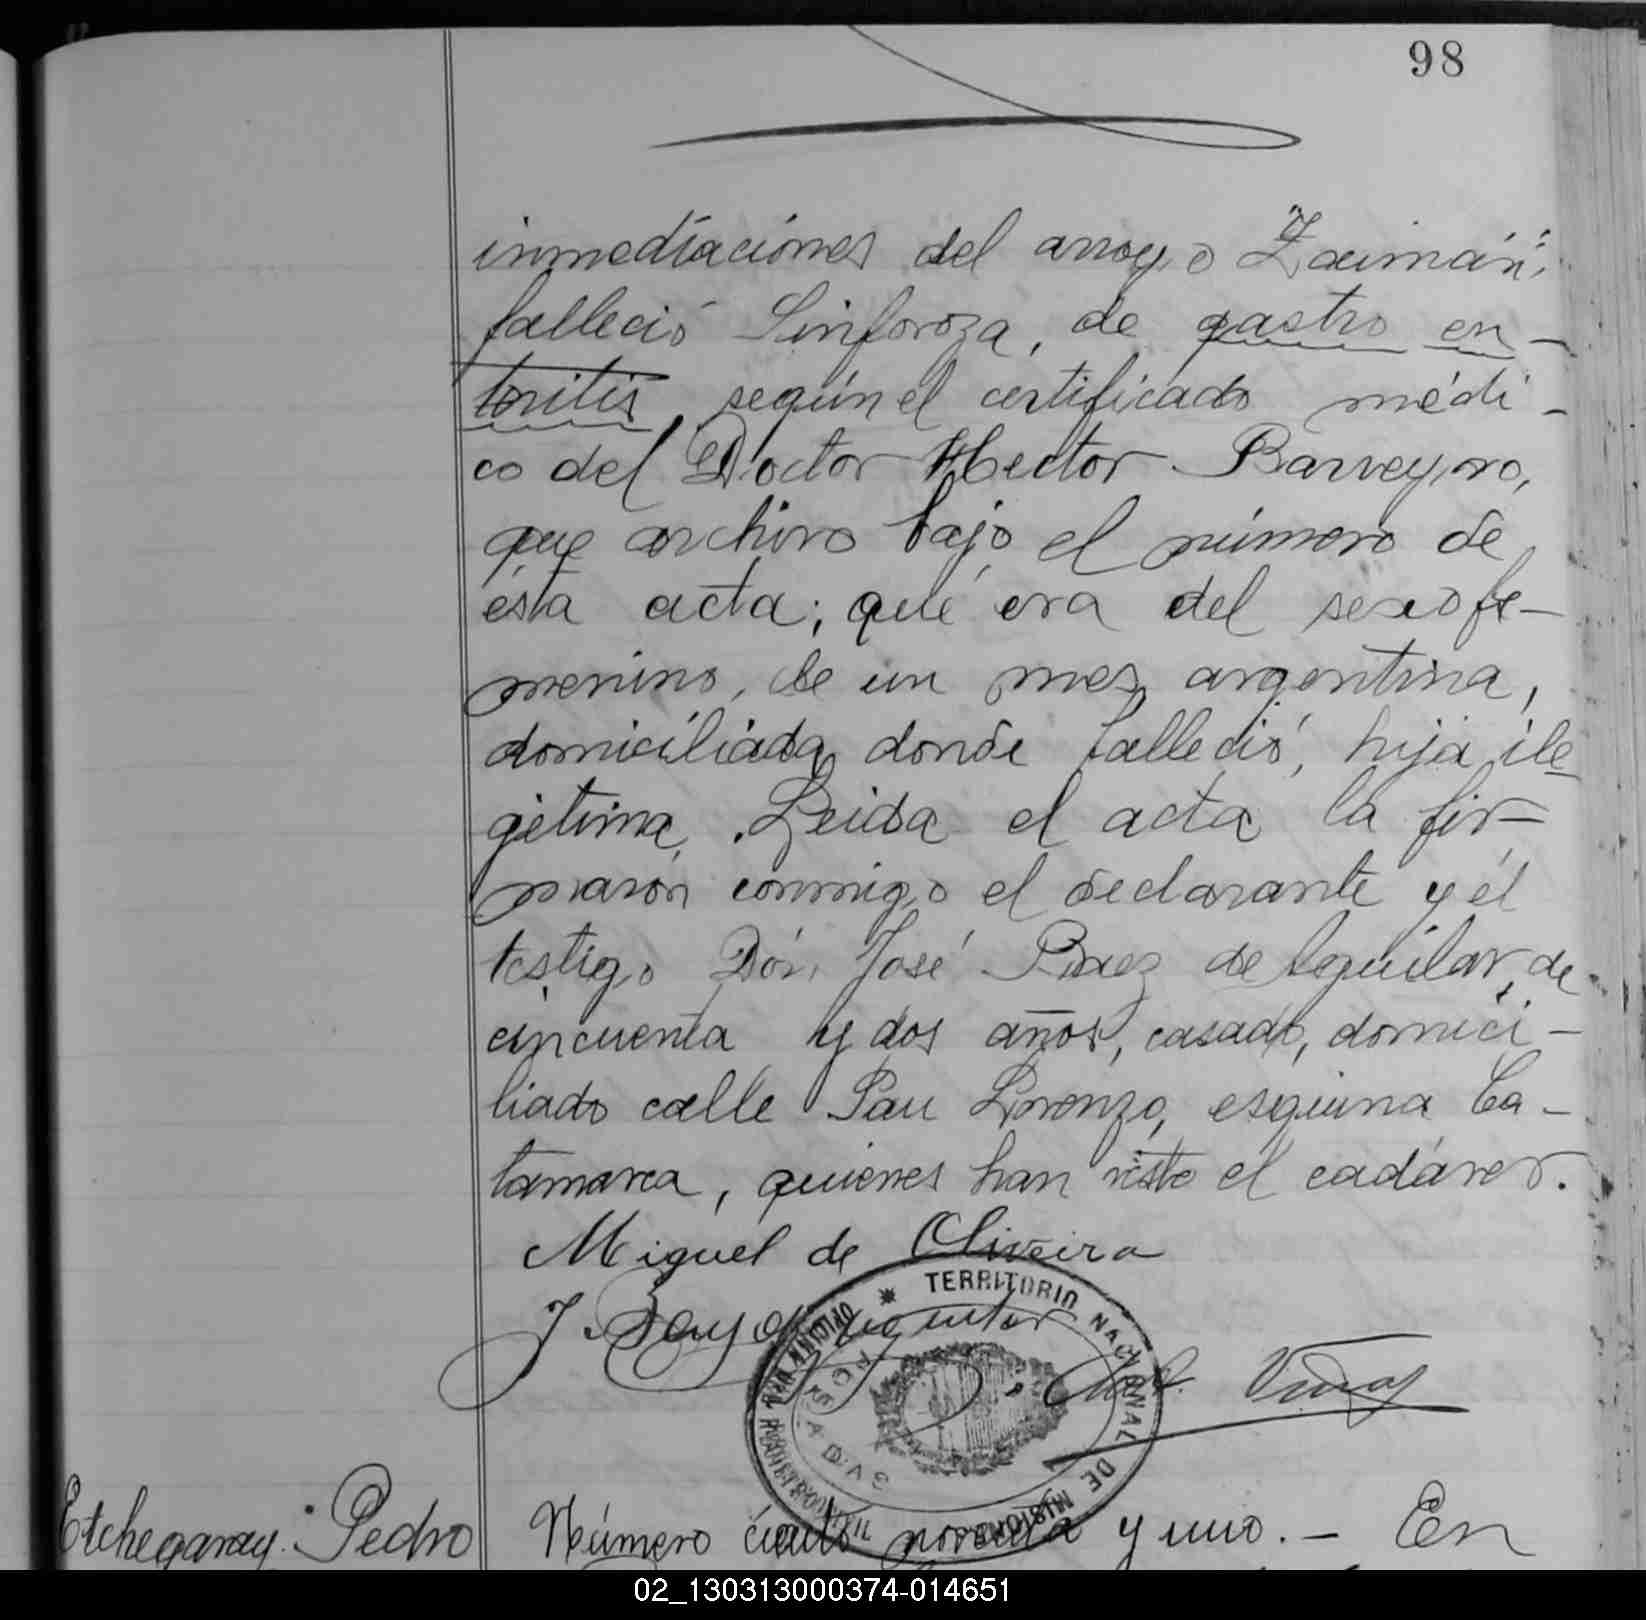 98
inmediaciones del arroyo "Zaimán",
falleció Sinforoza, de gastro en-
teritis, según el certificado médi-
co del Doctor Hector Barreyro,
que archivo bajo el número de
esta acta; que era del sexo fe-
menino, de un mes, argentina,
domiciliada donde falleció, hija ile-
gitima. Leida el acta la fir-
maron conmigo el declarante y el
testigo Don José Baez de Aguilar, de
cincuenta y dos años, casado, domici-
liado calle San Lorenzo, esquina Ca-
tamarca, quienes han visto el cadáver.
Miguel de Oliveira
J. Baez Aguilar
TERRITORIO NACIONAL DE MISIONES
POSADAS
Etchegaray Pedro
Número ciento noventa y uno. - En
02_130313000374-014651